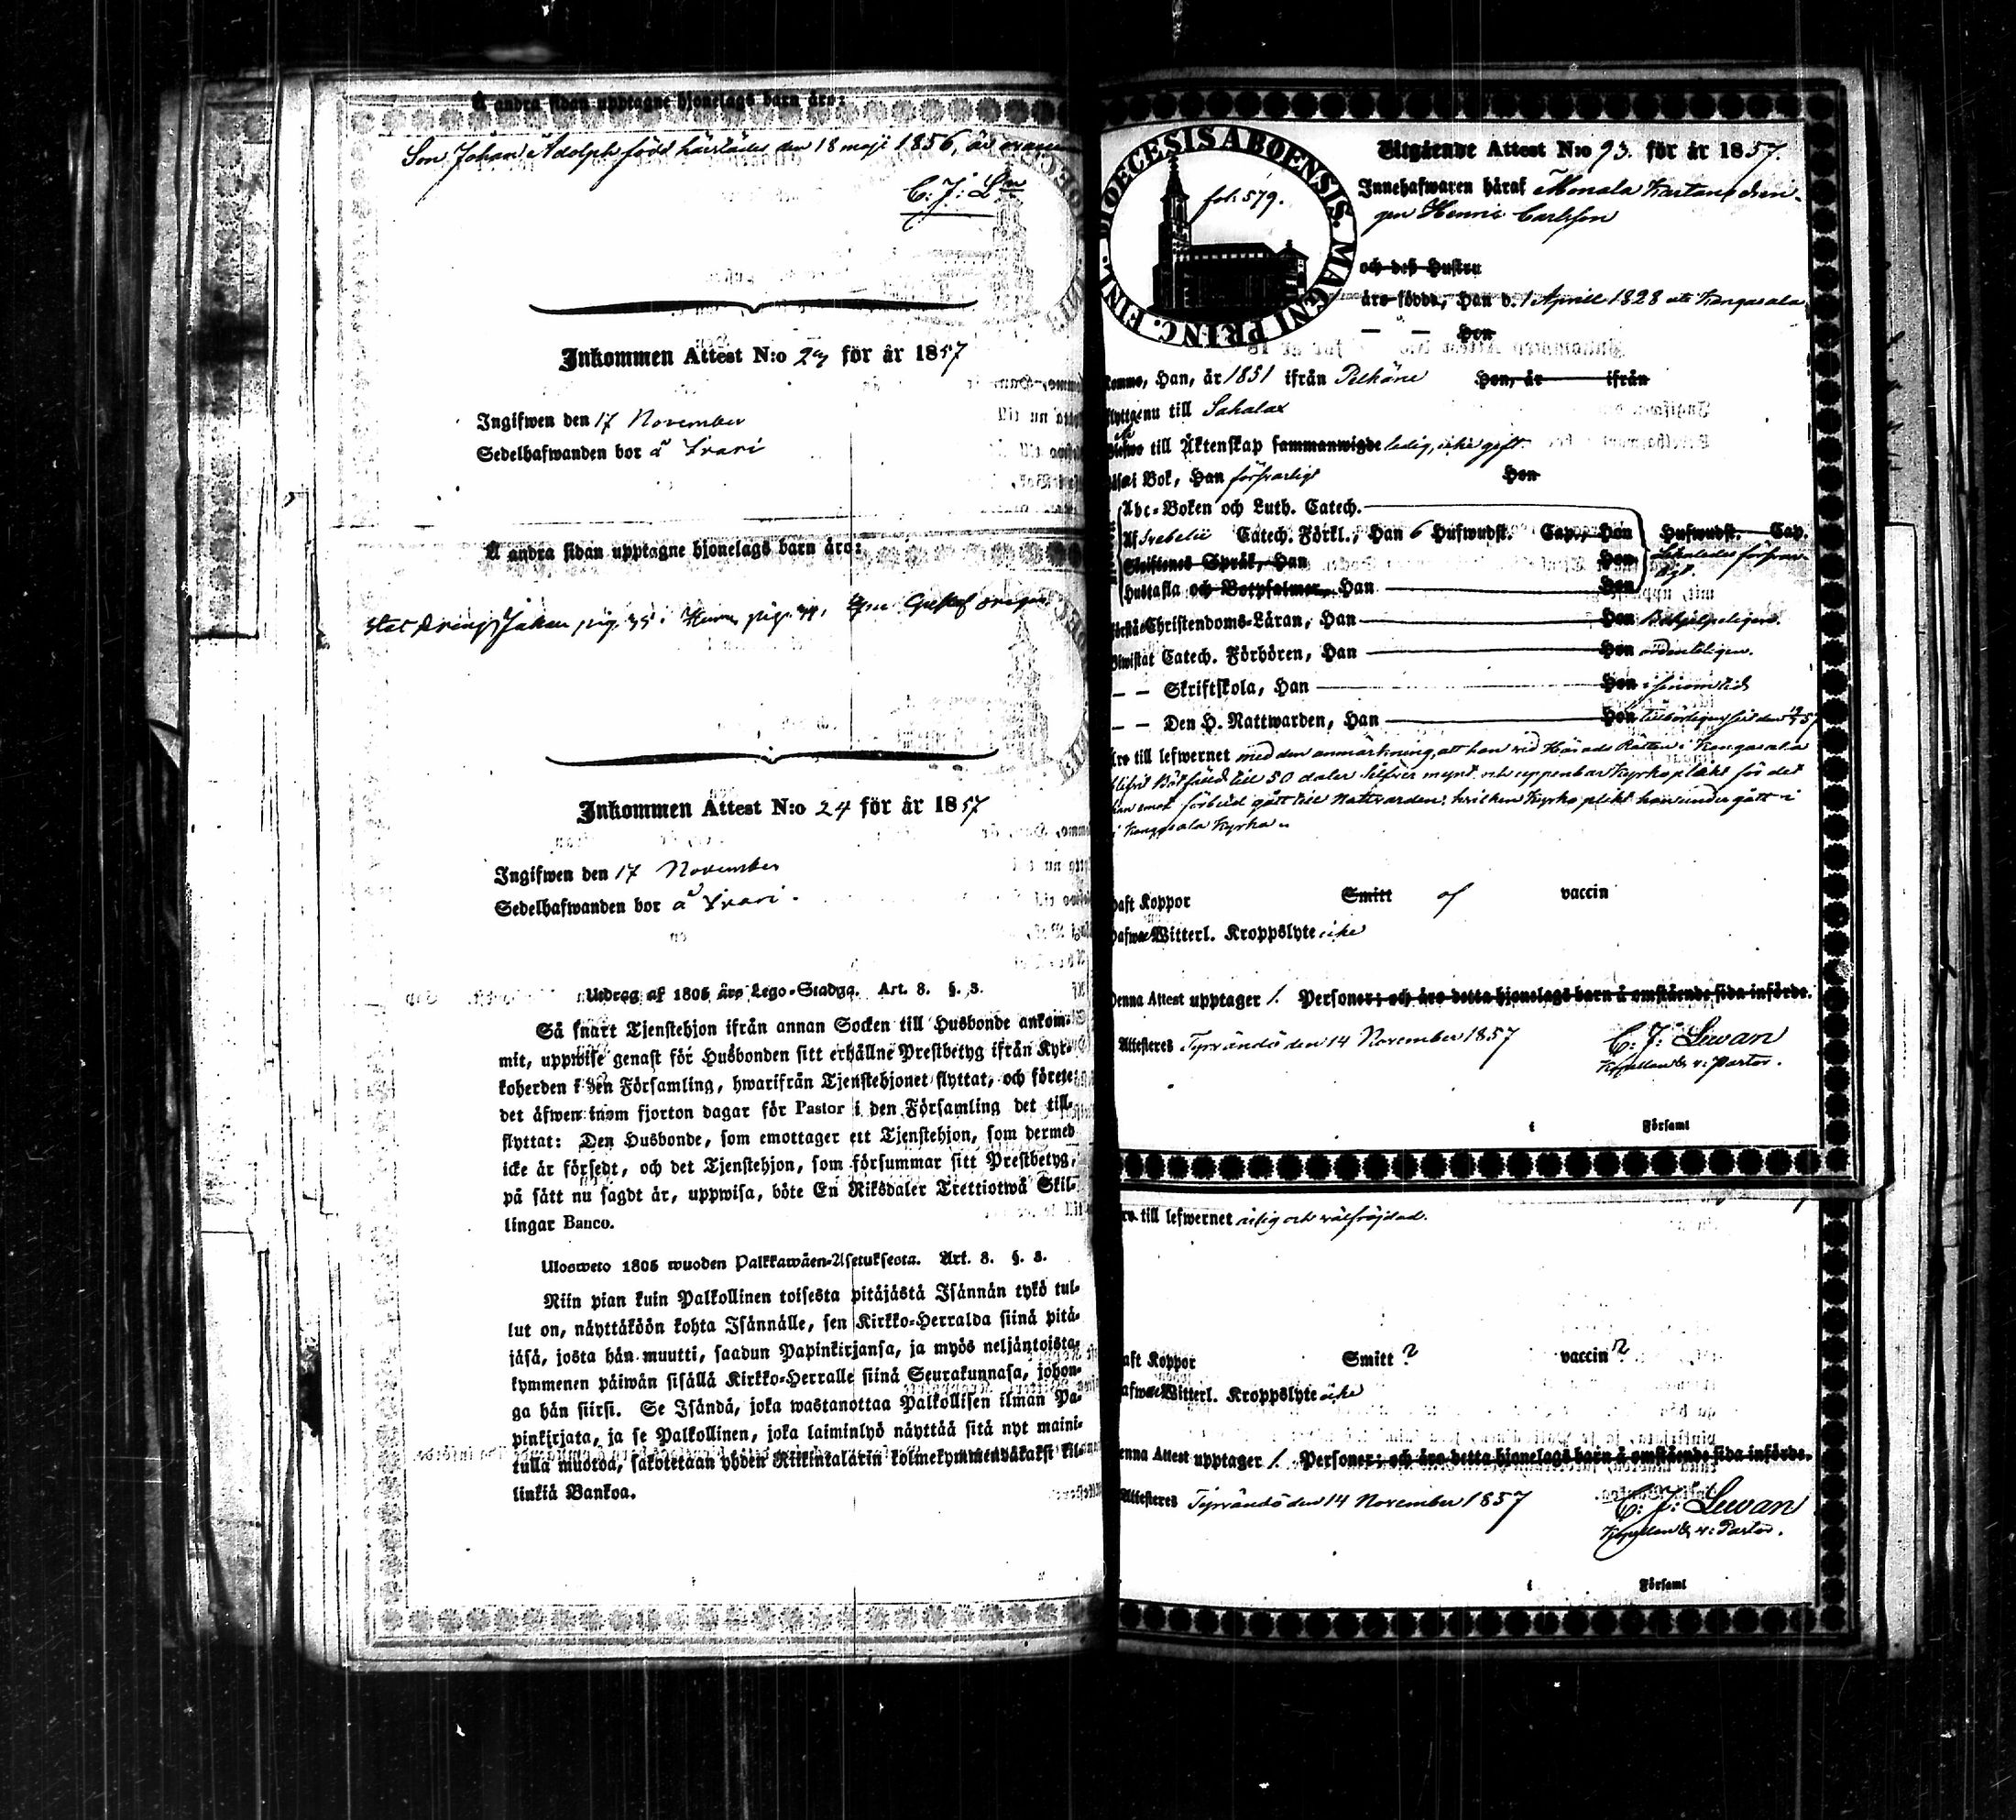 Å andra sidan upptagne hjonelags barn äro:
Son Johan Adolph född härstädes den 18 maji 1856, är
C: J: Ln
Inkommen Attest N:o 23 för år 1857
Ingifwen den 17 November
Sedelhafwanden bor å
Å andra sidan upptagne hjonelags barn äro:
Johan pig. Gustaf
Inkommen Attest N:o 24 för år 1857
Ingifwen den 17 November
Sedelhafwanden bor å
Utdrag af 1805 års Lego-Stadga. Art. 8. §. 3.
Så snart Tjenstehjon ifrån annan Socken till Husbonde ankom-
mit, uppwise genast för Husbonden sitt erhållne Prestbetyg ifrån Kyr-
koherden i den Församling, hwarifrån Tjenstehjonet flyttat, och förete
det äfwen inom fjorton dagar för Pastor i den Församling det till-
flyttat: Den Husbonde, som emottager ett Tjenstehjon, som dermed
icke är försedt, och det Tjenstehjon, som försummar sitt Prestbetyg,
på sätt nu sagdt är, uppwisa, böte En Riksdaler Trettiotwå Skil-
lingar Banco.
Ulosweto 1805 wuoden Palkkawäen-Asetuksesta. Art. 8. §. 3.
Niin pian kuin Palkollinen toisesta pitäjästä Isännän tykö tul-
lut on, näyttäköön kohta Isännälle, sen Kirkko-Herralda siinä pitä-
jäsä, josta hän muutti, saadun Papinkirjansa, ja myös neljäntoista-
kymmenen päiwän sisällä Kirkko-Herralle siinä Seurakunnasa, johon-
ga hän siirsi. Se Isändä, joka wastanottaa Palkollisen ilman Pa-
pinkirjata, ja se Palkollinen, joka laiminlyö näyttää sitä nyt maini-
tulla muotoa, sakotetaan yhden Riikintalarin kolmekymmendäkaksi kil-
linkiä Bankoa.
DIOECESIS ABOENSIS. MAGNI PRINC. FINL.
fol: 579.
Utgående Attest N:o 93. för år 1857.
Innehafwaren häraf
gen Henric Carlsson
och deß Hustru
äro födde, Han d. 1 Aprill 1828 uti Kangasala
— — Hon
komne, Han, år 1851 ifrån Pelkäne Hon, år ifrån
flyttgenu till Sahalax
till Äktenskap sammanwigde ledig, icke gift.
i Bok, Han förswarligt Hon
Abc-Boken och Luth. Catech.
Af Svebelii Catech. Förkl., Han 6 Hufwudst. Cap., Hon Hufwudst. Cap.
Skriftenes Språk, Han Hon
Hustafla och Botpsalmer, Han Hon
Christendoms-Läran, Han Hon
Catech. Förhören, Han Hon ordenteligen.
— — Skriftskola, Han Hon
— — Den H. Nattwarden, Han Hon
till lefwernet med den anmärkning, att han vid Härads Rätten i Kangasala
Bötfälld till 50 daler Silfver mynt och uppenbar Kyrkoplikt för det
han emot förbud gått till Nattvarden; hvilken Kyrkoplikt han undergått i
Kangasala Kyrka
haft Koppor Smitt af vaccin
Witterl. Kroppslyte icke
Denna Attest upptager 1. Personer; och äro detta hjonelags barn å omstående sida införde.
Attesteres Tyrvändö den 14 November 1857
C: J: Lewan
Kapellan & v: Pastor.
i Församl
till lefwernet ärlig och välfrejdad.
haft Koppor Smitt ? vaccin ?
Witterl. Kroppslyte icke
Denna Attest upptager 1. Personer; och äro detta hjonelags barn å omstående sida införde.
Attesteres Tyrvändö den 14 November 1857
C: J: Lewan
Kapellan & v: Pastor.
i Församl